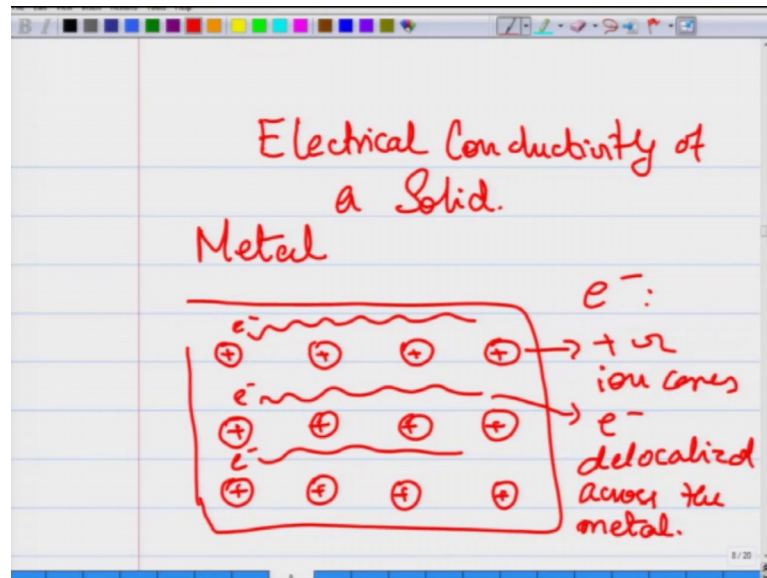 Electrical Conductivity of
a Solid.
Metal
e⁻:
e⁻
+ + + +
→ + ve
ion cores
e⁻
+ + + +
→ e⁻
delocalized
e⁻
across the
+ + + +
metal.
8/20